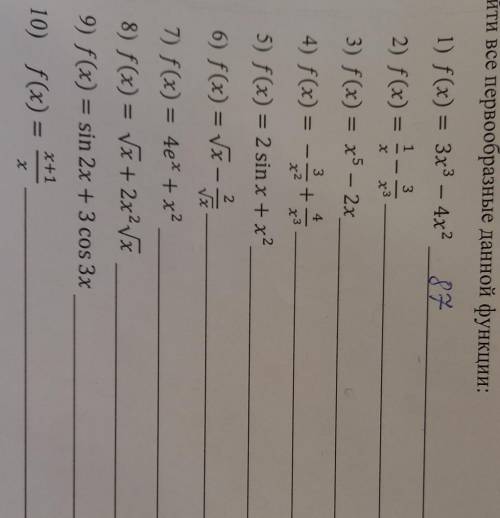 йти все первообразные данной функции:
1) f(x) = 3x³ − 4x² 87
2) f(x) = 1/x − 3/x³
3) f(x) = x⁵ − 2x
4) f(x) = −3/x² + 4/x³
5) f(x) = 2 sin x + x²
6) f(x) = √x − 2/√x
7) f(x) = 4eˣ + x²
8) f(x) = √x + 2x²√x
9) f(x) = sin 2x + 3 cos 3x
10) f(x) = x+1/x